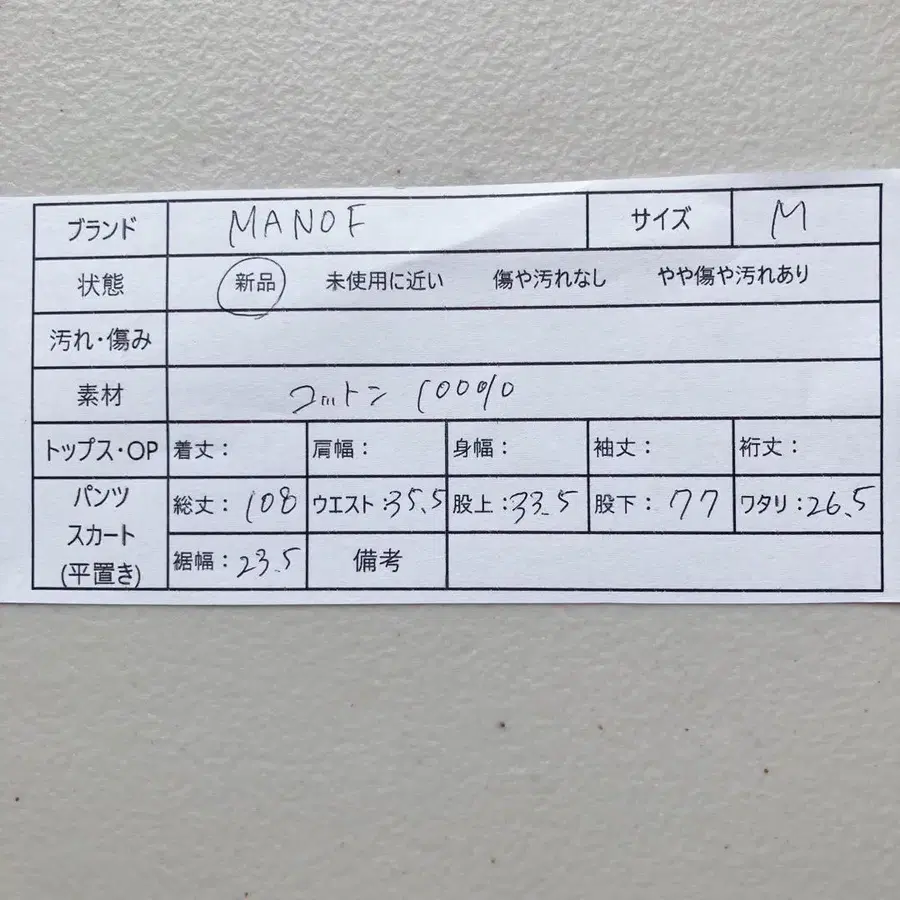 ブランド MANOF サイズ M
状態 新品 未使用に近い 傷や汚れなし やや傷や汚れあり
汚れ・傷み
素材 コットン 100%
トップス・OP 着丈： 肩幅： 身幅： 袖丈： 裄丈：
パンツ スカート (平置き) 総丈：108 ウエスト：35.5 股上：33.5 股下：77 ワタリ：26.5
裾幅：23.5 備考